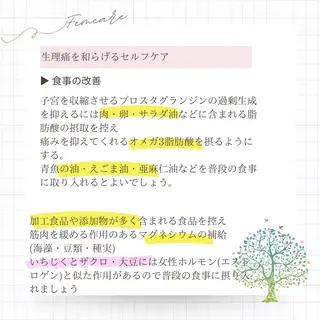 Femcare
生理痛を和らげるセルフケア
▶ 食事の改善
子宮を収縮させるプロスタグランジンの過剰生成
を抑えるには肉・卵・サラダ油などに含まれる脂
肪酸の摂取を控え
痛みを抑えてくれるオメガ3脂肪酸を摂るように
する。
青魚の油・えごま油・亜麻仁油などを普段の食事
に取り入れるとよいでしょう。
加工食品や添加物が多く含まれる食品を控え
筋肉を緩める作用のあるマグネシウムの補給
(海藻・豆類・種実)
いちじくとザクロ・大豆には女性ホルモン(エスト
ロゲン)と似た作用があるので普段の食事に摂り入
れましょう